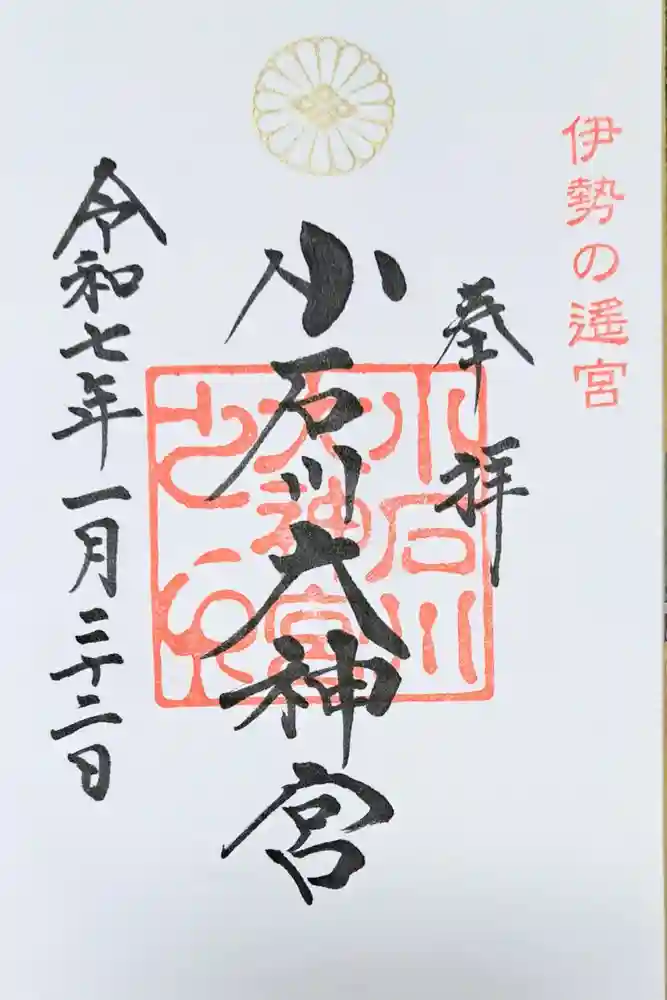 伊勢の遙宮
奉拝
小石川大神宮
令和七年一月二十二日
小石川
大神宮
之印